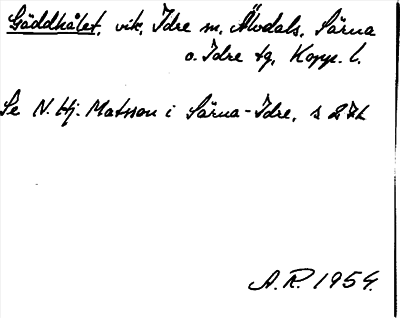 Gäddhålet, vik, Idre sn, Älvdals, Särna
o. Idre tg, Kopp. l.
Se N. Hj. Matsson i Särna-Idre, s 272
A.R. 1954.